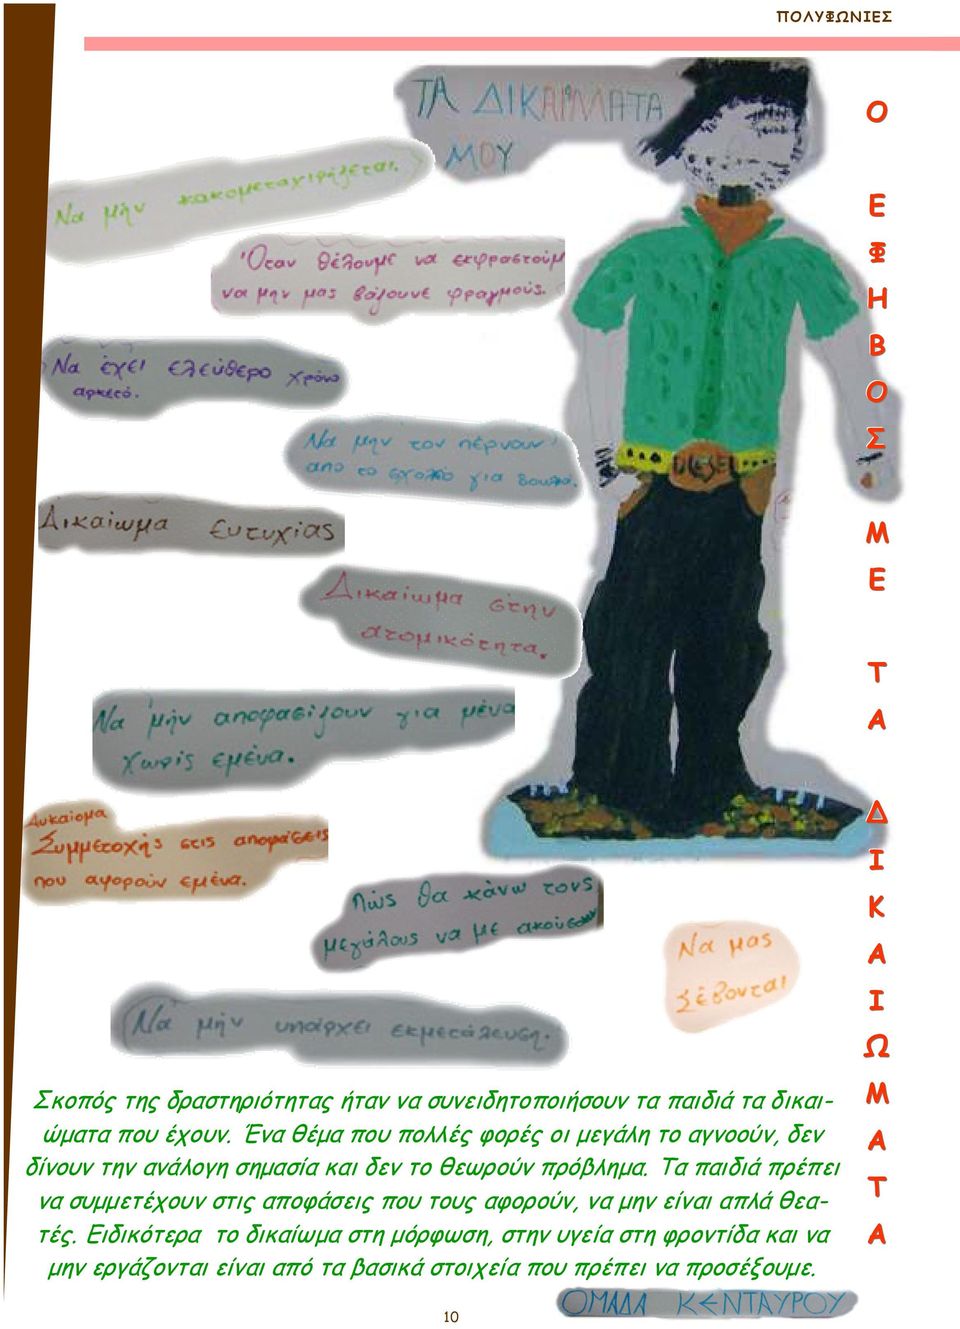 ΠΟΛΥΦΩΝΙΕΣ
ΤΑ ΔΙΚΑΙΩΜΑΤΑ
ΜΟΥ
Να μήν κακομεταχιρίζεται.
Όταν θέλουμε να εκφραστούμ
να μην μας βάζουνε φραγμούς.
Να έχει ελεύθερο χρόνο
αρκετό.
Να μην τον πέρνουν
απο το σχολιό για δουλιά.
DIESEL
Δικαίωμα ευτυχίας
Δικαίωμα στην
ατομικότητα.
Να μήν αποφασίζουν για μένα
χωρίς εμένα.
Δυκαίομα
Συμμετοχής στις αποφάσεις
που αφορούν εμένα.
Πώς θα κάνω τους
μεγάλους να με ακούσουν
Να μας
Σέβονται
Να μήν υπάρχει εκμετάλευση.
Ο ΕΦΗΒΟΣ ΜΕ ΤΑ ΔΙΚΑΙΩΜΑΤΑ
Σκοπός της δραστηριότητας ήταν να συνειδητοποιήσουν τα παιδιά τα δικαι-
ώματα που έχουν. Ένα θέμα που πολλές φορές οι μεγάλη το αγνοούν, δεν
δίνουν την ανάλογη σημασία και δεν το θεωρούν πρόβλημα. Τα παιδιά πρέπει
να συμμετέχουν στις αποφάσεις που τους αφορούν, να μην είναι απλά θεα-
τές. Ειδικότερα το δικαίωμα στη μόρφωση, στην υγεία στη φροντίδα και να
μην εργάζονται είναι από τα βασικά στοιχεία που πρέπει να προσέξουμε.
ΟΜΑΔΑ ΚΕΝΤΑΥΡΟΥ
10